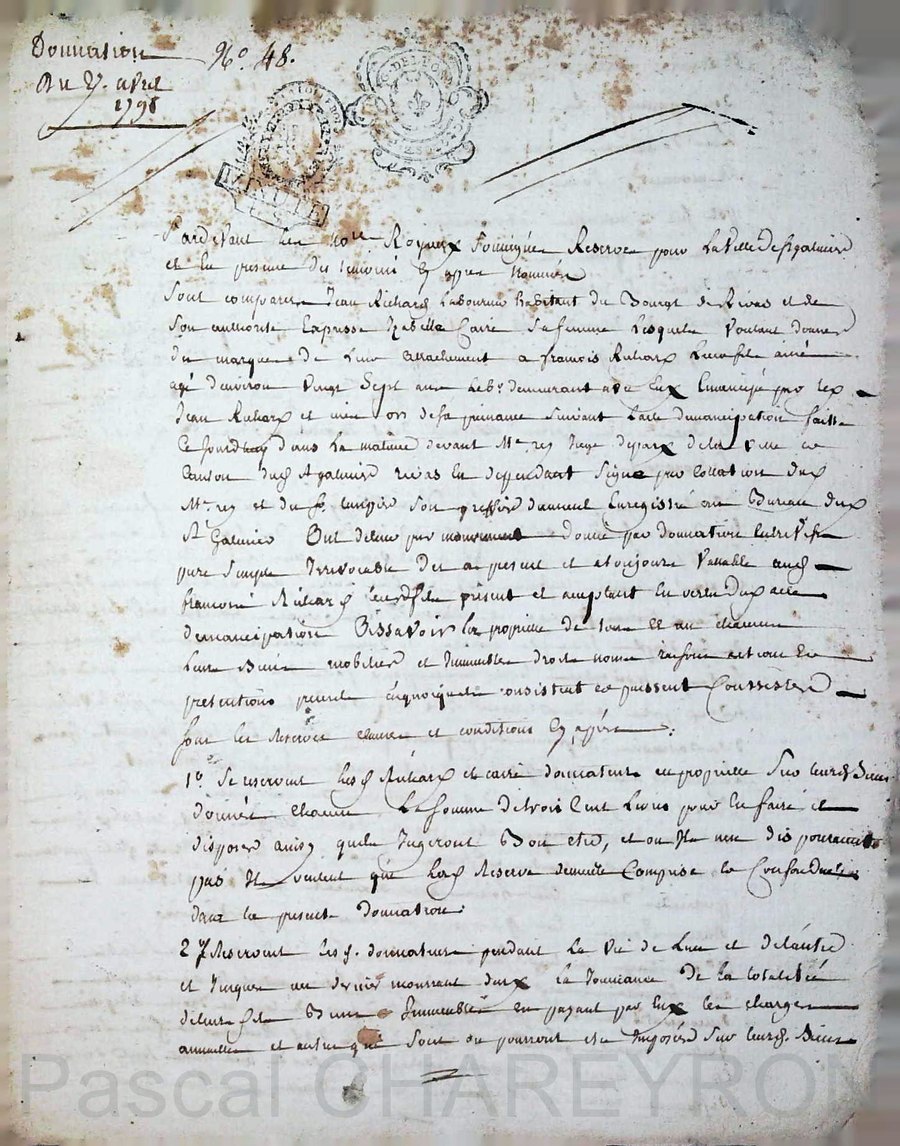 Donnation N.o 48.
Du 7. avril
1791
G. DE LYON
pardevant les no.re Royaux soussigné Reservé pour La Ville de st galmier
et en presence des temoins cy apres nommes
Sont comparus Jean Richard Laboureur habitant du Bourg de Rivas et de
Son authorité Expresse Izabelle Carré sa femme Lesquels Voulant donner
des marques de Leur attachement a francois Richard Leur fils ainé
agé denviron Vingt Sept ans Leb.r demeurant avec Eux Emancipé par led
Jean Richard et mis hors de sa puissance suivant Lacte demancipation faitte
Ce jourdhuy dans La matinée devant M.e rey Juge depaix de la ville et
Canton dud st galmier rivas En dependant Signé par Collation dud
M.e rey et du s.r son greffier dument Enregistré au Bureau dud
St Galmier Ont donné par donnation Entre Vifs
pure Simple Irrevocable des a present et atoujours Vallable aud
francois Richard Leurd fils present et acceptant En vertu dud acte
demancipation Assavoir La proprieté de tous et un chacuns
Leurs Biens mobilier et Immeubles droits noms raisons actions et
pretentions presents Enquoiquils consistent et puissent Consister
sous les Reserves clauses et conditions cy apres
1.o Se reservent Lesd Richard et Carré donnateurs en proprieté Sur leursd Biens
donnés chacun La somme de trois Cent Livres pour En faire et
disposer ainsy quils Jugeront Bon etre, et ou Ils nen disposeroint
pas Ils veulent que Lesd Reserve demeure Comprise et Confondue
dans la presente donnation
2.o Reservent Lesd. donnateurs pendant La vie de Lun et de Lautre
et Jusques au dernier mourant deux La Jouissance de la totalité
de leursd Biens Immeubles en payant par Eux les charges
annuelles et autres qui Sont ou pourront etre Imposées Sur leursd Biens
Pascal CHAREYRON